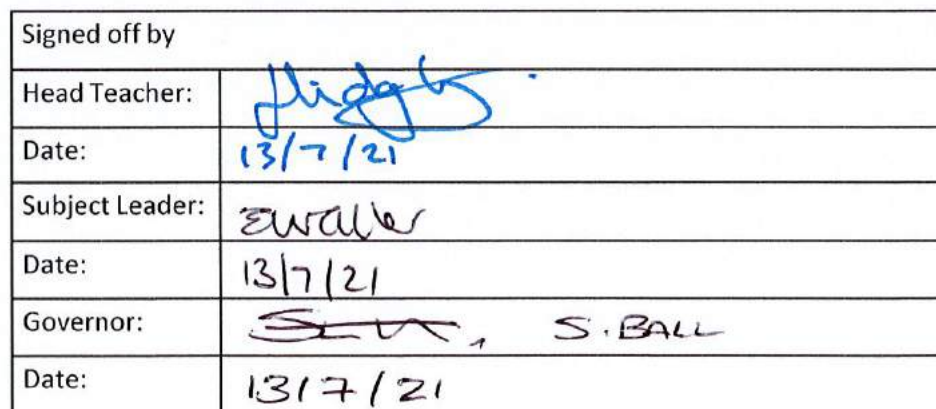 Signed off by
Head Teacher:
Date: 13/7/21
Subject Leader: EWaller
Date: 13/7/21
Governor: S. BALL
Date: 13/7/21